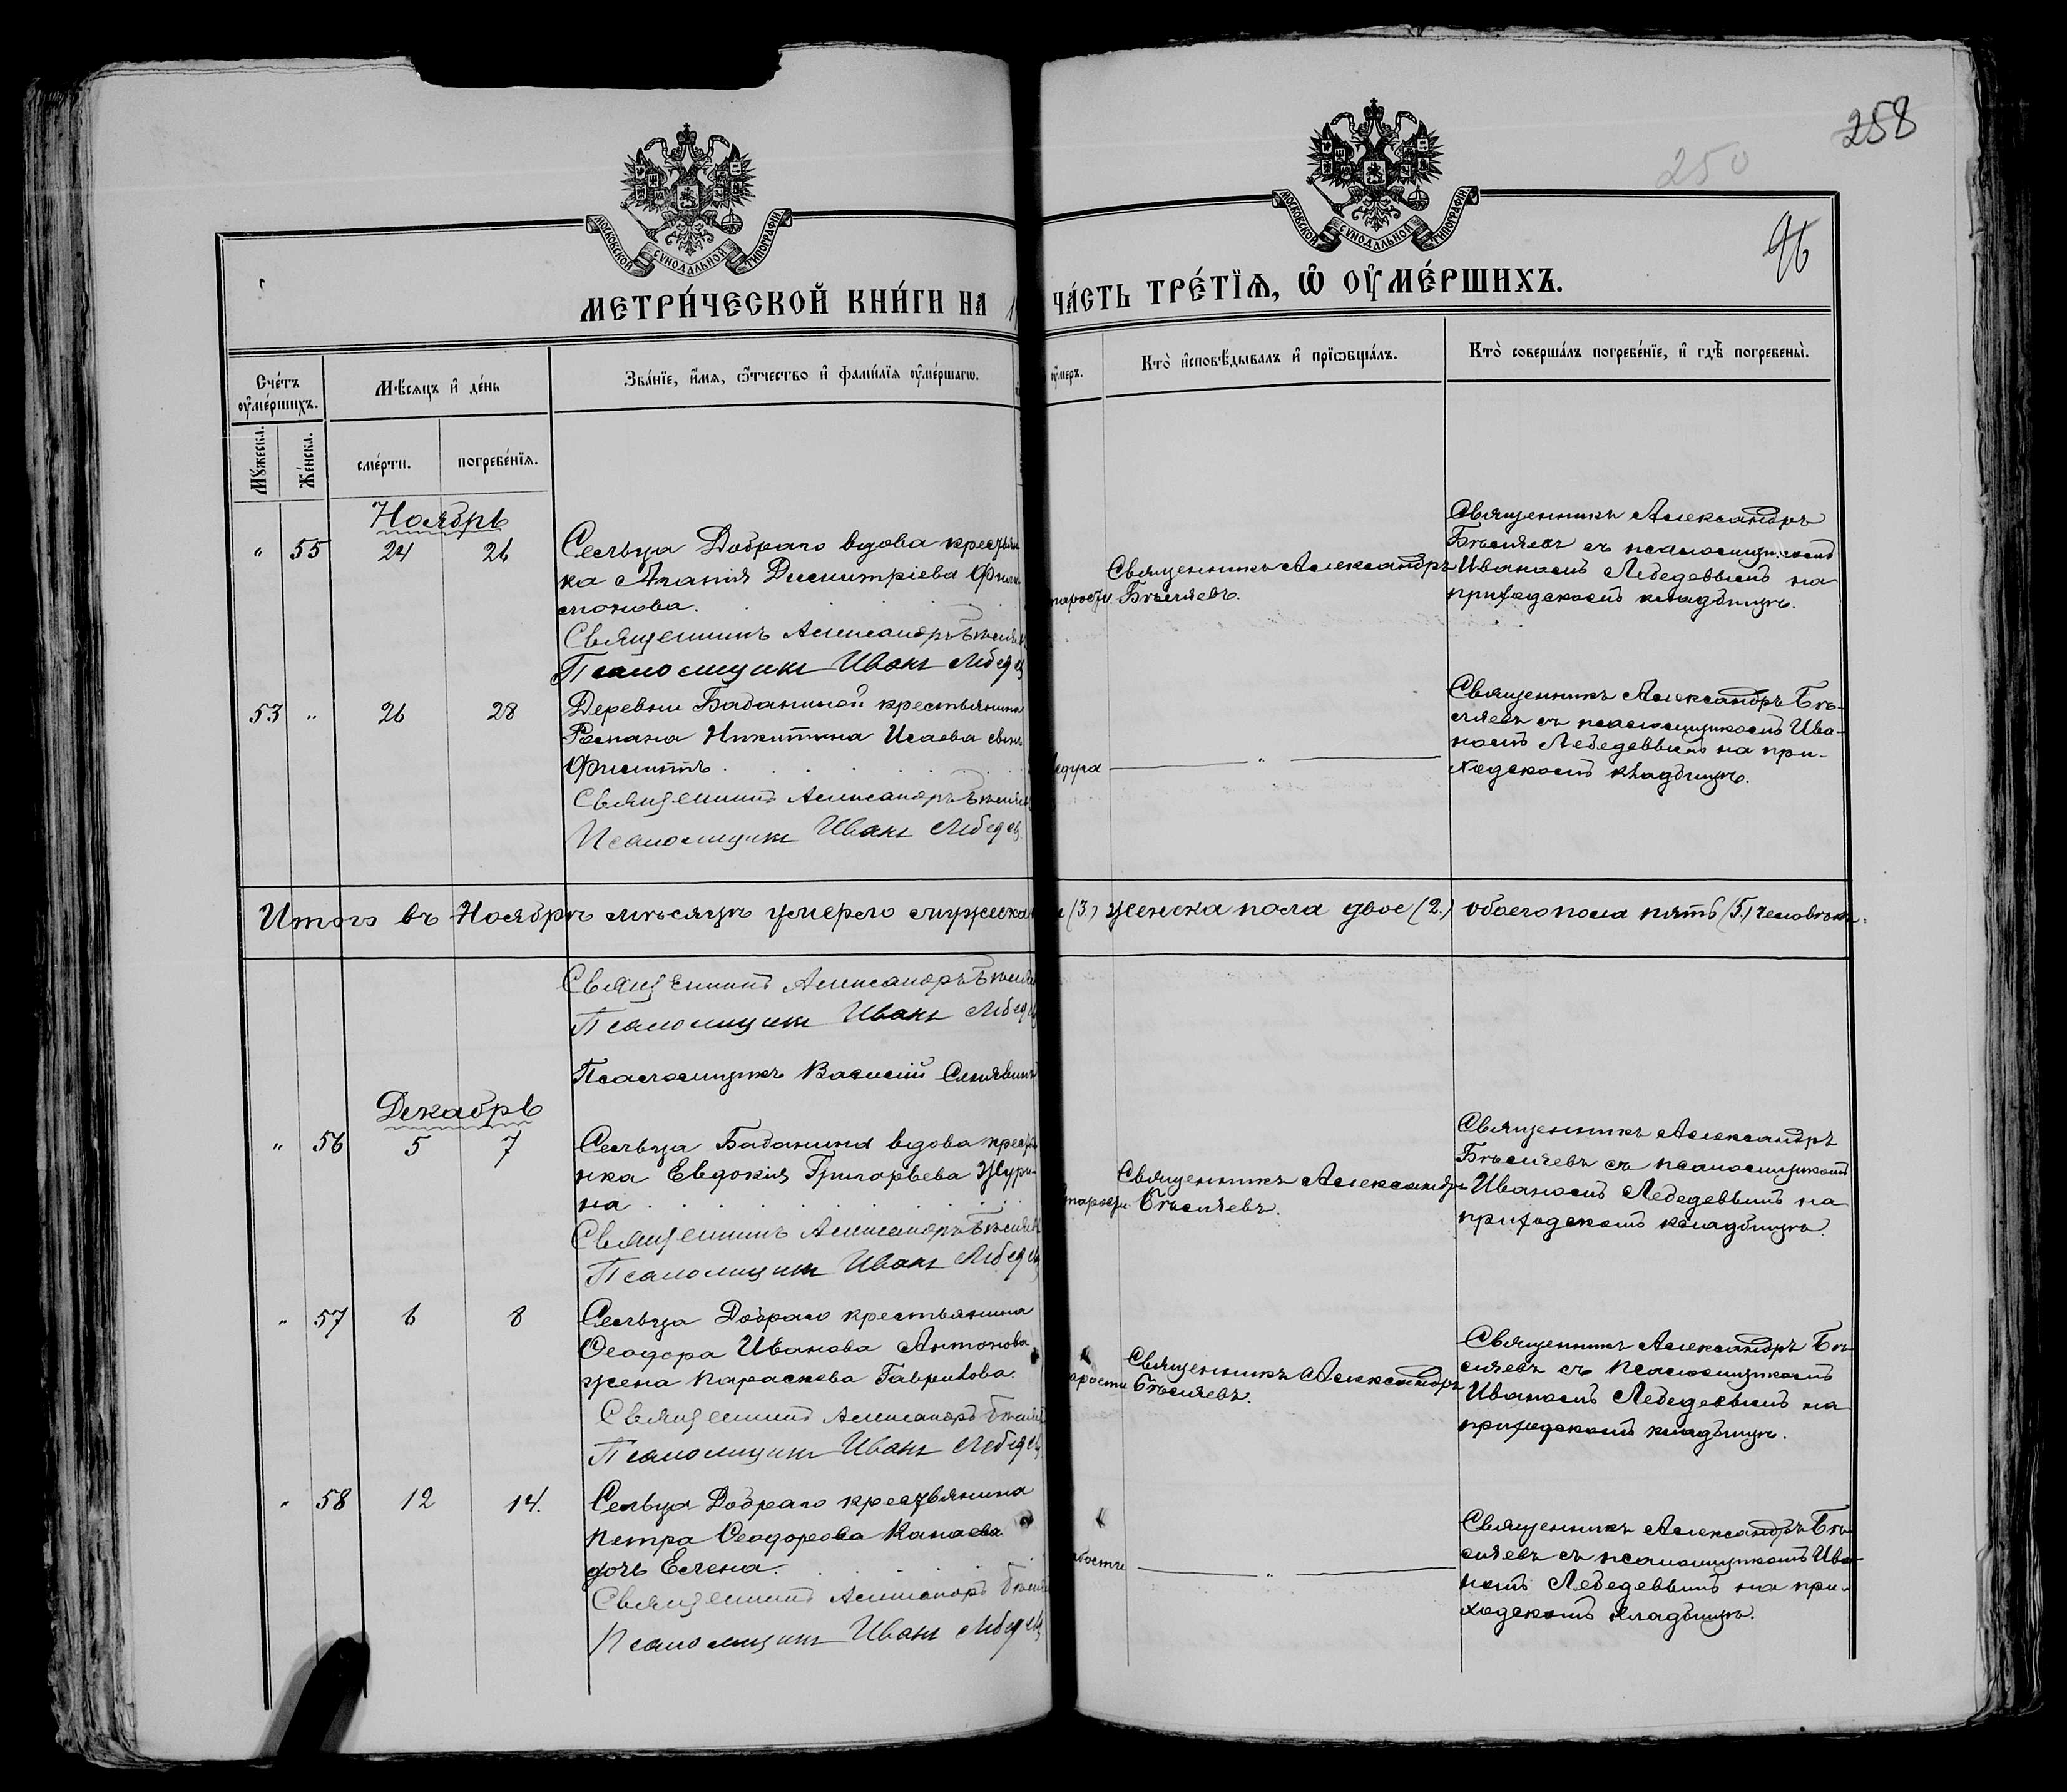 258
250
96
МОСКОВСКОЙ СѴНОДАЛЬНОЙ ТИПОГРАФІИ
МОСКОВСКОЙ СѴНОДАЛЬНОЙ ТИПОГРАФІИ
МЕТРИ́ЧЕСКОЙ КНИ́ГИ НА
ЧА́СТЬ ТРЕ́ТЇѦ, Ѽ ОУ҆МЕ́РШИХЪ.
Сче́тъ оу҆ме́ршихъ.
Мѣ́сяцъ и҆ де́нь
Зва́нїе, и҆́мѧ, ѻ҆́тчество и҆ фами́лїѧ оу҆ме́ршагѡ.
оу҆меръ.
Кто̀ и҆сповѣ́дывалъ и҆ прїѡбща́лъ.
Кто̀ соверша́лъ погребе́нїе, и҆ гдѣ̀ погребены̀.
Мꙋ́жеска.
Же́нска.
сме́рти.
погребе́нїѧ.
Ноябрь
" 55 24 26
Сельца Добраго вдова крестьян
ка Агапія Димитріева Фили
монова.
Священникъ Александръ Бѣляев
Псаломщикъ Иванъ Лебедев
тарости
Священникъ Александръ
Бѣляевъ.
Священникъ Александръ
Бѣляевъ съ псаломщикомъ
Иваномъ Лебедевымъ на
приходскомъ кладбищѣ.
53 " 26 28
Деревни Бабаниной крестьянина
Романа Никитина Исаева сынъ
Филиппъ
Священникъ Александръ Бѣляев
Псаломщикъ Иванъ Лебедев
"
Священникъ Александръ Бѣ-
ляевъ съ псаломщикомъ Ива-
номъ Лебедевымъ на при-
ходскомъ кладбищѣ.
Итого въ Ноябрѣ мѣсяцѣ умерло мужеска (3.) женска пола двое (2.) обоего пола пять (5.) человѣкъ.
Священникъ Александръ Бѣляев
Псаломщикъ Иванъ Лебедев
Псаломщикъ Василій
Декабрь
" 56 5 7
Сельца Бабанина вдова крестья
нка Евдокия Григорьева Жури-
на
Священникъ Александръ Бѣляев
Псаломщикъ Иванъ Лебедев
тарости
Священникъ Александръ
Бѣляевъ.
Священникъ Александръ
Бѣляевъ съ псаломщикомъ
Иваномъ Лебедевымъ на
приходскомъ кладбищѣ.
" 57 6 8
Сельца Добраго крестьянина
Ѳеодора Иванова Антонова
жена Параскева Гаврилова.
Священникъ Александръ Бѣляев
Псаломщикъ Иванъ Лебедев
арости
Священникъ Александръ
Бѣляевъ.
Священникъ Александръ Бѣ-
ляевъ съ псаломщикомъ
Иваномъ Лебедевымъ на
приходскомъ кладбищѣ.
" 58 12 14.
Сельца Добраго крестьянина
Петра Ѳеодорова Канаева
дочь Елена.
Священникъ Александръ Бѣляев
Псаломщикъ Иванъ Лебедев
"
Священникъ Александръ Бѣ-
ляевъ съ псаломщикомъ Ива-
номъ Лебедевымъ на при-
ходскомъ кладбищѣ.